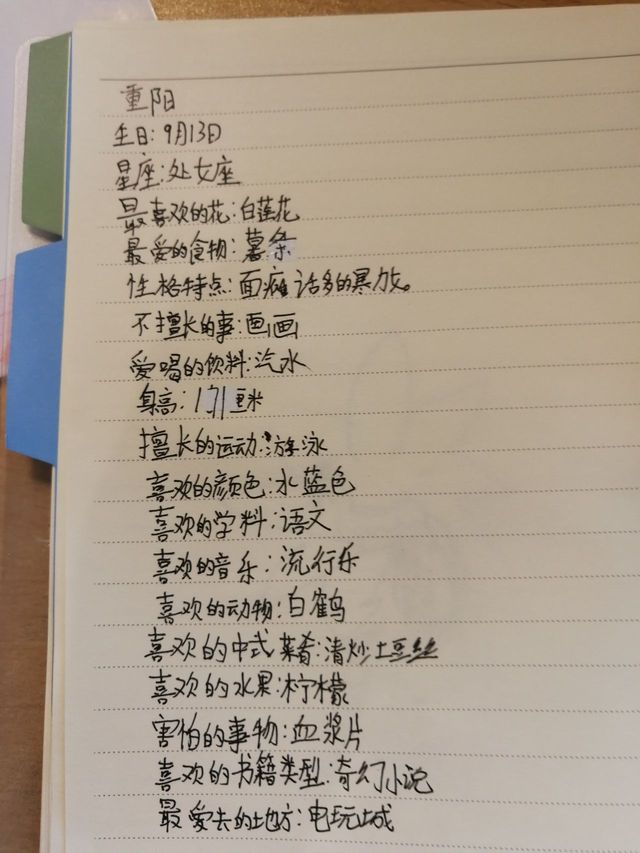 重阳
生日:9月13日
星座:处女座
最喜欢的花:白莲花
最爱的食物:薯条
性格特点:面瘫话多的暴力女。
不擅长的事:画画
爱喝的饮料:汽水
身高:171厘米
擅长的运动:游泳
喜欢的颜色:水蓝色
喜欢的学料:语文
喜欢的音乐:流行乐
喜欢的动物:白鹤
喜欢的中式菜肴:清炒土豆丝
喜欢的水果:柠檬
害怕的事物:血浆片
喜欢的书籍类型:奇幻小说
最爱去的地方:电玩城